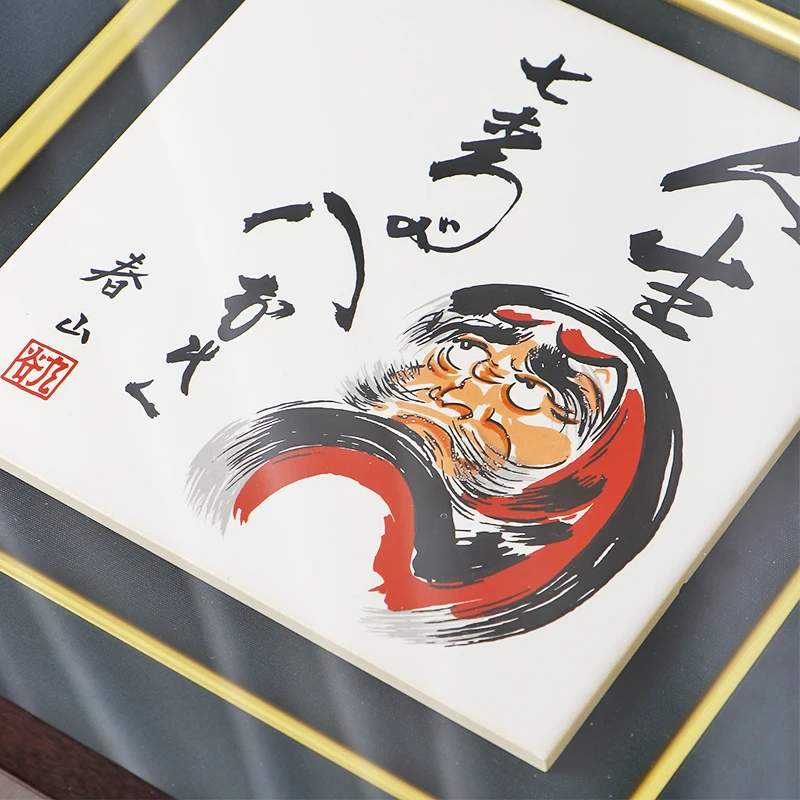 人生
七転び
八おき
春山
九谷